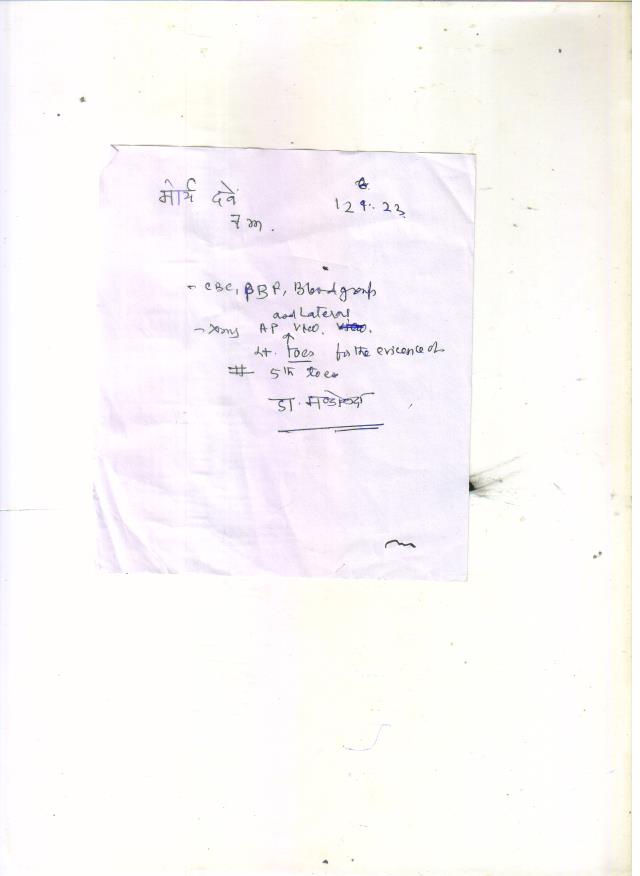 मौर्य दवे
12 9. 23
7 m.
- CBC, PBP, Blood group
and Lateral
- Xray AP View.
Lt. toes for the evicence of
# 5th toes
डा.